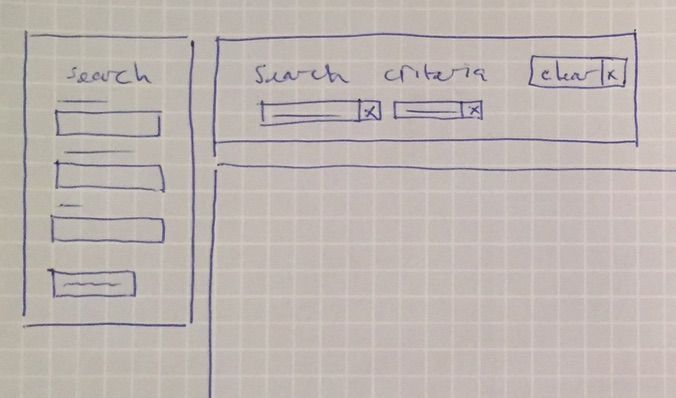 search
Search criteria
clear x
x x